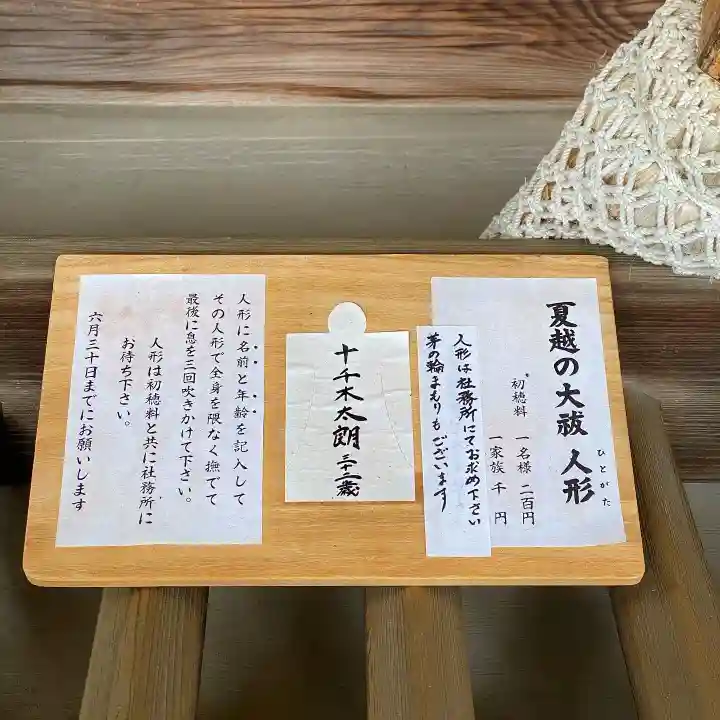 夏越の大祓 人形
ひとがた
初穂料 一名様 二百円
一家族 千 円
人形は社務所にてお求め下さい
茅の輪まもりもございます
十千木太朗 三十二歳
人形に名前と年齢を記入して
その人形で全身を隈なく撫でて
最後に息を三回吹きかけて下さい。
人形は初穂料と共に社務所に
お待ち下さい。
六月三十日までにお願いします